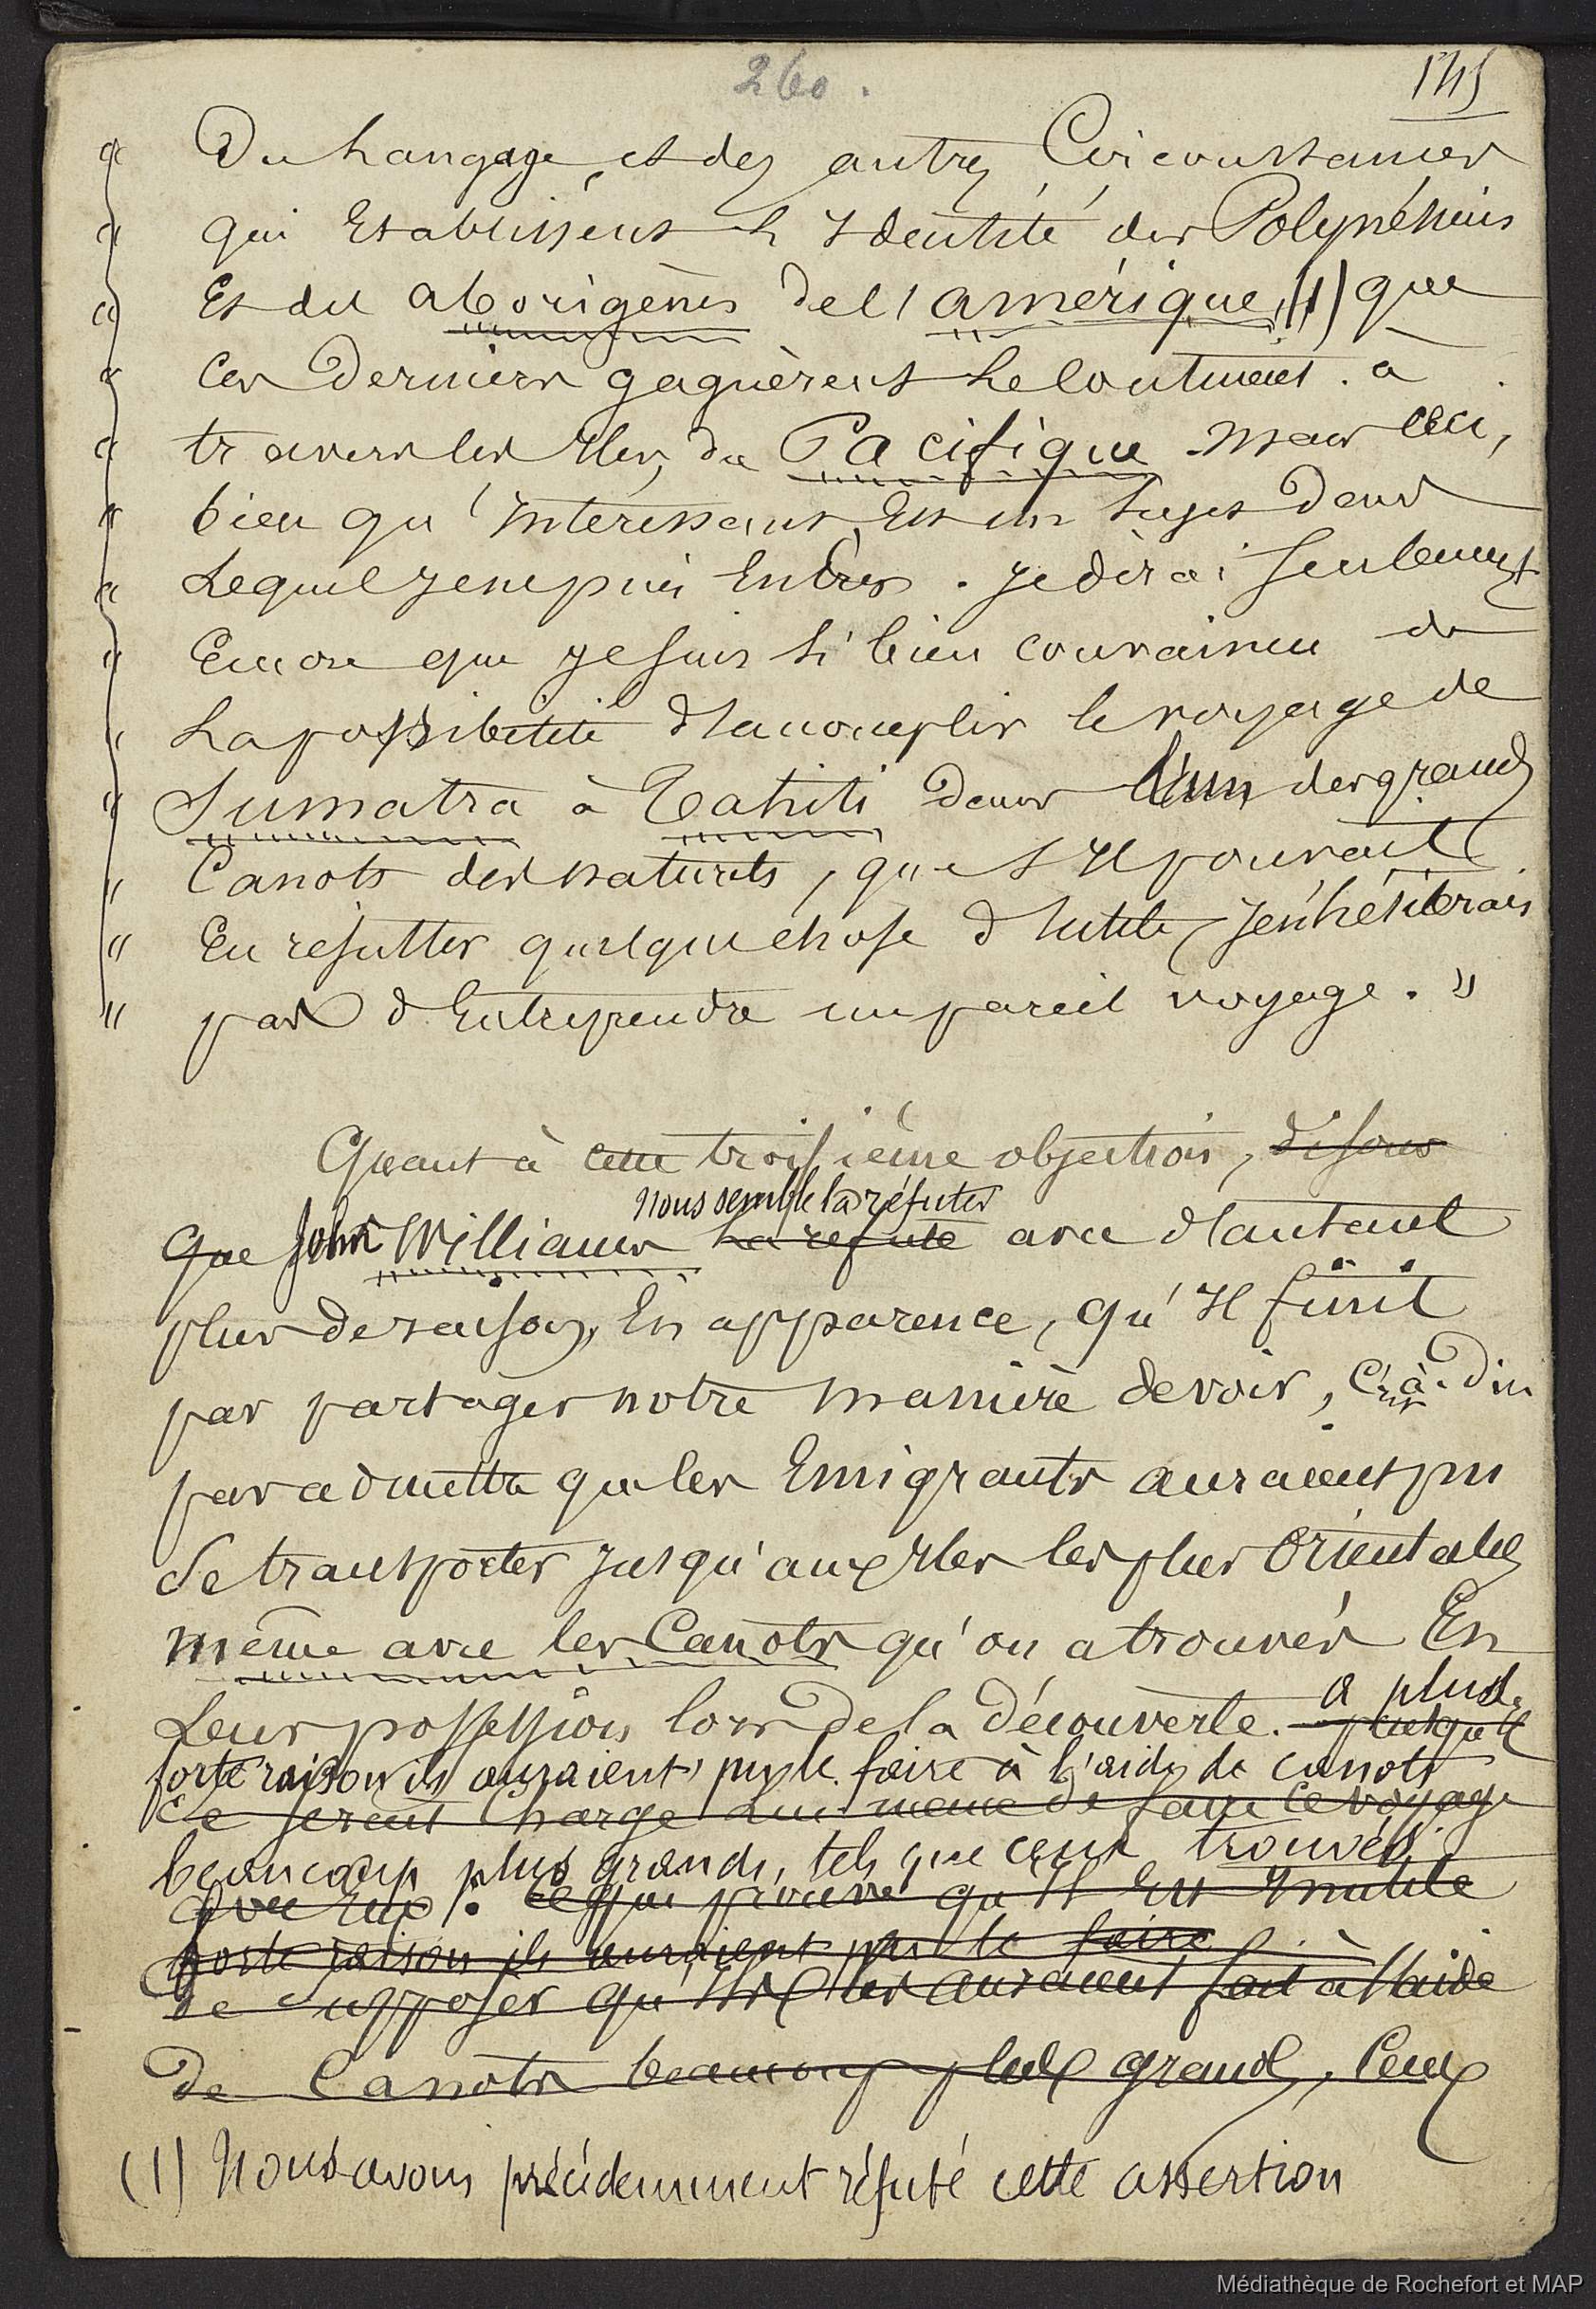 260.
145
" Du Langage, et des autres Circonstances
" qui Etablissent L'Identité des Polynésiens
" Et des aborigènes de l'amérique, (1) que
" Ces Derniers gagnèrent Le Continent à
" travers les Iles, du Pacifique. Mais ceci,
" bien qu'Interessant, Est un Sujet dans
" Lequel je ne puis Entrer. Je dirai Seulement
" Encore que je suis si bien convaincu de
" La possibilité d'accomplir le voyage de
" Sumatra à Tahiti dans l'un des grands
" Canots des naturels, que s'Il pouvait
" En résulter quelque chose d'utile, je n'hésiterais
" pas d'Entreprendre un pareil voyage. "
Quant à cette troisième objection, disons
nous semble la réfuter
que John Williams l'a réfuté avec d'autant
plus de raison, En apparence, qu'Il finit
par partager notre manière de voir, C. à. Dire
par admettre que les Emigrants auraient pu
Se transporter jusqu'aux Iles les plus Orientales
même avec les Canots qu'on a trouvés En
Leur possession lors de la découverte. puisqu'il
a plus
forte raison ils auraient pu le faire à l'aide de canots
Se serait Chargé Lui même de faire Ce voyage
beaucoup plus grands, tels que ceux trouvés.
avec Eux. Ce qui prouve qu'Il Est Inutile
forte raison ils auraient pu le faire
de Supposer qu'Ils les auraient fait à l'aide
de Canots beaucoup plus grands, Ceux
(1) Nous avons précédemment réfuté cette assertion
Médiathèque de Rochefort et MAP